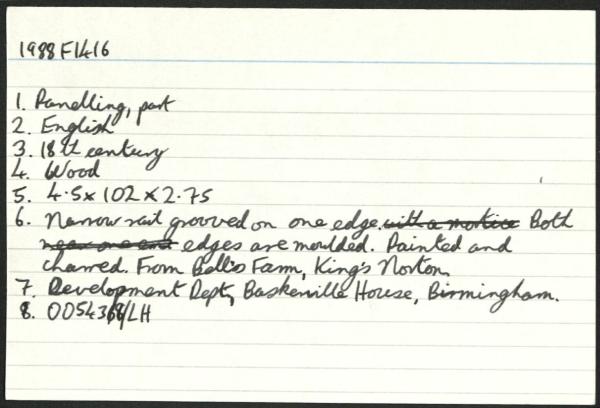 1988 F1416
1. Panelling, part
2. English
3. 18th century
4. Wood
5. 4.5 x 102 x 2.75
6. Narrow rail grooved on one edge. with a mortice Both
near one end edges are moulded. Painted and
charred. From Bell's Farm, King's Norton.
7. Development Dept, Baskerville House, Birmingham.
8. 005436/LH